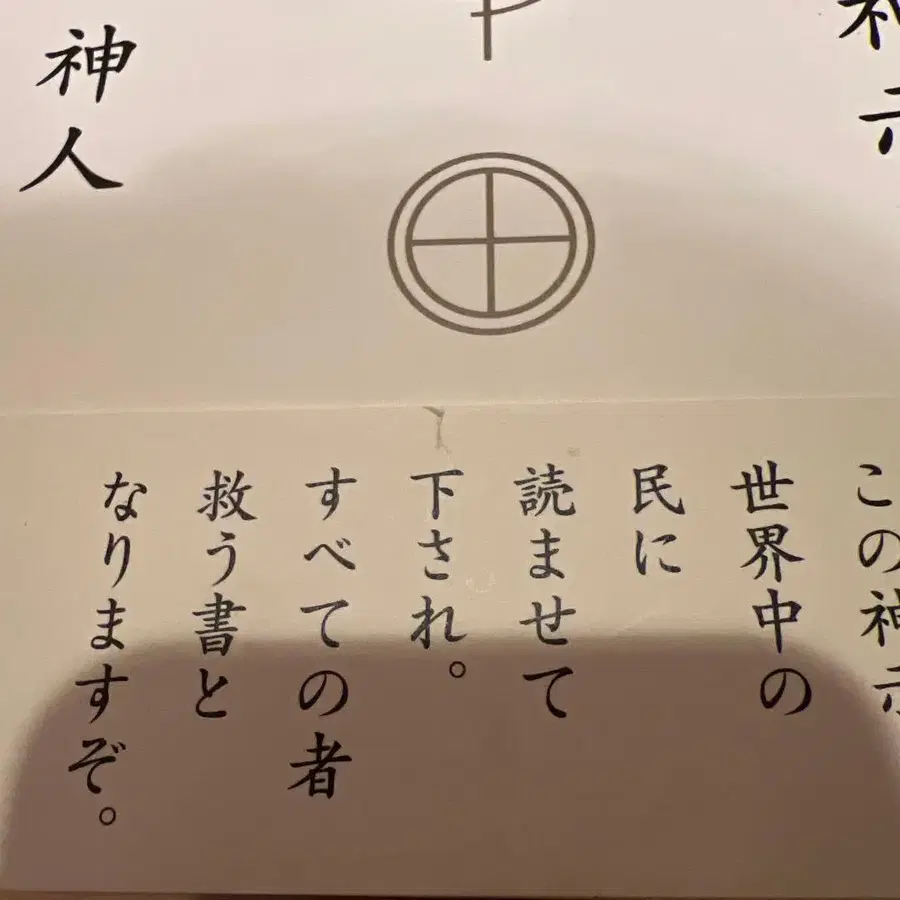 神人
この神
世界中の
民に
読ませて
下され。
すべての者
救う書と
なりますぞ。